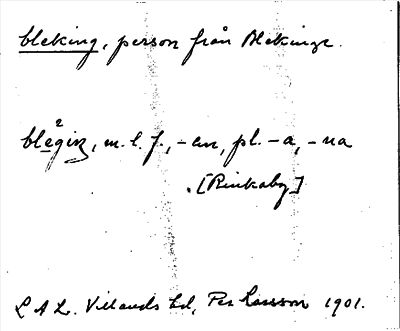 bleking, person från Blekinge.
blègiŋ, m. l. f., -en, pl. -a, -na
[Rinkaby]
L A L. Villands hd, Per Larsson 1901.